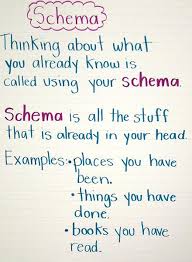 Schema
Thinking about what
you already know is
called using your schema.
Schema is all the stuff
that is already in your head.
Examples: • places you have
been.
• things you have
done.
• books you have
read.